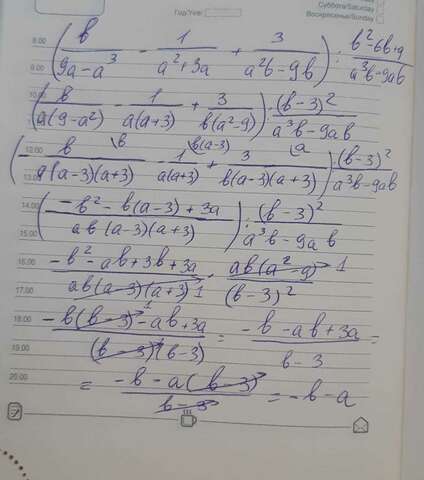 Суббота/Saturday
Год/Year
Воскресенье/Sunday
8.00 (b/(9a-a³) - 1/(a²+3a) + 3/(a²b-9b)) : (b²-6b+9)/(a³b-9ab)
9.00
10.00 (b/(a(9-a²)) - 1/(a(a+3)) + 3/(b(a²-9))) : (b-3)²/(a³b-9ab)
12.00 (- b/(a(a-3)(a+3)) \b - 1/(a(a+3)) \b(a-3) + 3/(b(a-3)(a+3)) \a) : (b-3)²/(a³b-9ab)
13.00
14.00 ((-b²-b(a-3)+3a)/(ab(a-3)(a+3))) : (b-3)²/(a³b-9ab)
15.00
16.00 (-b²-ab+3b+3a)/(ab(a-3)(a+3)) 1 · ab(a²-9) 1/(b-3)²
17.00
18.00 (-b(b-3) 1 -ab+3a)/((b-3)(b-3)) = (-b-ab+3a)/(b-3) =
19.00
20.00 = (-b-a(b-3))/(b-3) = -b-a